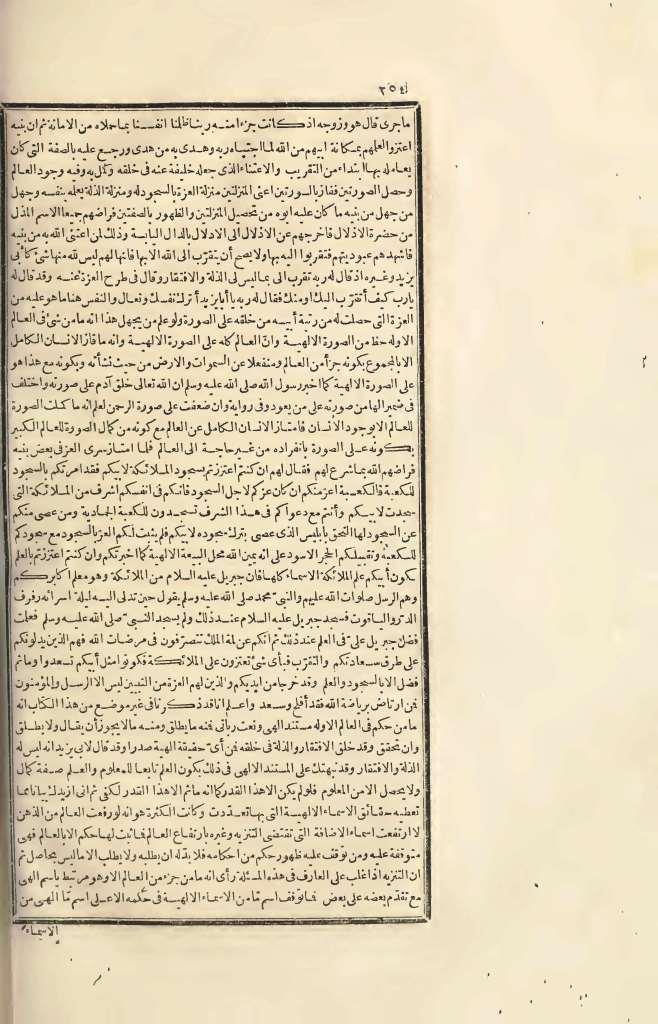 ٢٥٤
ما جرى قال هو وزوجه اذ كانت جزء امنه ربنا ظلمنا انفسنا بما حملاه من الامانة ثم ان بنيه
اعتزوا لعلمهم بمكانة ابيهم من الله لما اجتباه ربه وهدى به من هدى ورجع عليه بالصفة التى كان
يعامله بها ابتداء من التقريب والاعتناء الذى جعله خليفة عنه فى خلقه وكمل به وفيه وجود العالم
وحصل الصورتين ففاز بالسورتين اعنى المنزلتين منزلة العزة بالسجود له ومنزلة الذلة بعلمه بنفسه وجهل
من جهل من بنيه ما كان عليه ابوه من تحصيل المنزلتين والظهور بالصفتين فراضهم جميعا الاسم المذل
من حضرة الاذلال فاخرجهم عن الاذلال الى الادلال بالدال اليابسة وذلك لمن اعتنى الله به من بنيه
فاشهدهم عبوديتهم فتقربوا اليه بها ولا يصح أن يتقرب الى الله الا بها فانها لهم ليس لله منها شئ كأبى
يزيد وغيره اذ قال له ربه تقرب الى بما ليس لى الذلة والافتقار وقال فى طرح العزة عنه وقد قال له
يارب كيف أتقرب اليك او منك فقال له ربه يا أبا يزيد أترك نفسك وتعال والنفس هنا ما هو عليه من
العزة التى حصلت له من رتبة أبيه من خلقه على الصورة ولو علم من يجهل هذا انه ما من شئ فى العالم
الاوله حظ من الصورة الالهية وانّ العالم كله على الصورة الالهية وانه ما فاز الانسان الكامل
الا بالمجموع بكونه جزأ من العالم ومنفعلا عن السموات والارض من حيث نشأته وبكونه مع هذا هو
على الصورة الالهية كما اخبر رسول الله صلى الله عليه وسلم ان الله تعالى خلق آدم على صورته واختلف
فى ضمير الها من صورته على من يعود وفى رواية وان ضعفت على صورة الرحمن لعلم انه ما كملت الصورة
للعالم الا بوجود الانسان فامتاز الانسان الكامل عن العالم مع كونه من كمال الصورة للعالم الكبير
بكونه على الصورة بانفراده من غير حاجة الى العالم فلما امتاز سرى العز فى بعض بنيه
فراضهم الله بما شرع لهم فقال لهم ان كنتم اعتززتم بسجود الملائكة لابيكم فقد امرتكم بالسجود
للكعبة فالكعبة اعز منكم ان كان عزكم لاجل السجود فانكم فى انفسكم اشرف من الملائكة التى
سجدت لابيكم وأنتم مع دعواكم فى هذا الشرف تسجدون للكعبة الجمادية ومن عصى منكم
عن السجود لها التحق بابليس الذى عصى بترك سجوده لابيكم فلم يثبت لكم العز بالسجود مع سجودكم
للكعبة وتقبيلكم الحجر الاسود على انه يمين الله محل البيعة الالهية كما اخبرتكم وان كنتم اعتززتم بالعلم
لكون أبيكم علم الملائكة الاسماء كلها فان جبريل عليه السلام من الملائكة وهو معلم اكابركم
وهم الرسل صلوات الله عليهم والنبى محمد صلى الله عليه وسلم يقول حين تدلى اليه ليلة اسرائه رفرف
الدر والياقوت فسجد جبريل عليه السلام عند ذلك ولم يسجد النبى صلى الله عليه وسلم فعلمت
فضل جبريل علىّ فى العلم عند ذلك ثم انكم عن لمة الملك تتصرفون فى مرضات الله فهم الذين يدلونكم
على طرق سعادتكم والتقرب فبأى شئ تعتزون على الملائكة فكونوا مثل أبيكم تسعدوا وما ثم
فضل الا بالسجود والعلم وقد خرجا من ايديكم والذين لهم العزة من النبيين ليس الا الرسل والمؤمنون
فمن ارتاض برياضة الله فقد أفلح وسعد واعلم انا قد ذكرنا فى غير موضع من هذا الكتاب انه
ما من حكم فى العالم الاوله مستند الهى ونعت ربانى فمنه ما يطلق ومنه ما لا يجوز أن يقال ولا يطلق
وان تحقق وقد خلق الافتقار والذلة فى خلقه فمن أىّ حقيقة الهية صدرا وقد قال لابى يزيد انه ليس له
الذلة والافتقار وقد نبهتك على المستند الالهى فى ذلك بكون العلم تابعا للمعلوم والعلم صفة كمال
ولا يحصل الا من المعلوم فلو لم يكن الا هذا القدر كما انه ما ثم الا هذا القدر لكفى ثم انى ازيدك بيانا مما
تعطيه حقائق الاسماء الالهية التى بها تعددت وكانت الكثرة هو انه لو رفعت العالم من الذهن
لا ارتفعت اسماء الاضافة التى تقتضى التنزيه وغيره بارتفاع العالم فما ثبت لها حكم الا بالعالم فهى
متوقفة عليه ومن توقف عليه ظهور حكم من احكامه فلا بدّ له ان يطلبه ولا يطلب الا ما ليس بحاصل ثم
ان التنزيه اذا غلب على العارف فى هذه المسئلة رأى انه ما من جزء من العالم الا وهو مرتبط باسم الهى
مع تقدم بعضه على بعض فما توقف اسم مّا من الاسماء الالهية فى حكمه الا على اسم مّا الهى من
الاسماء